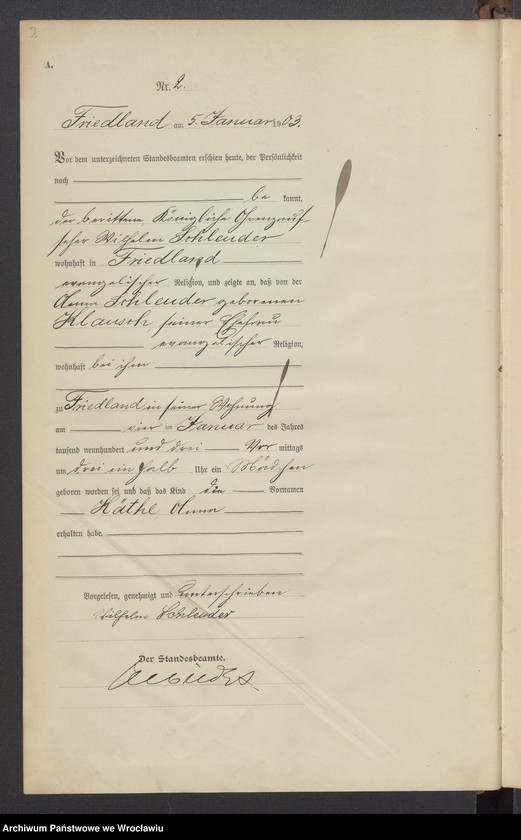 2
A.
Nr. 2.
Friedland am 5. Januar 1903.
Vor dem unterzeichneten Standesbeamten erschien heute, der Persönlichkeit
nach
be kannt,
der berittene Königliche Grenzauf-
seher Wilhelm Schleuder
wohnhaft in Friedland
evangelischer Religion, und zeigte an, daß von der
Anna Schleuder geborenen
Klausch, seiner Ehefrau
evangelischer Religion,
wohnhaft bei ihm
zu Friedland in seiner Wohnung
am vier ten Januar des Jahres
tausend neunhundert und drei Vor mittags
um drei ein halb Uhr ein Mädchen
geboren worden sei und daß das Kind die Vornamen
Käthe Anna
erhalten habe.
Vorgelesen, genehmigt und unterschrieben
Wilhelm Schleuder
Der Standesbeamte.
Archiwum Państwowe we Wrocławiu